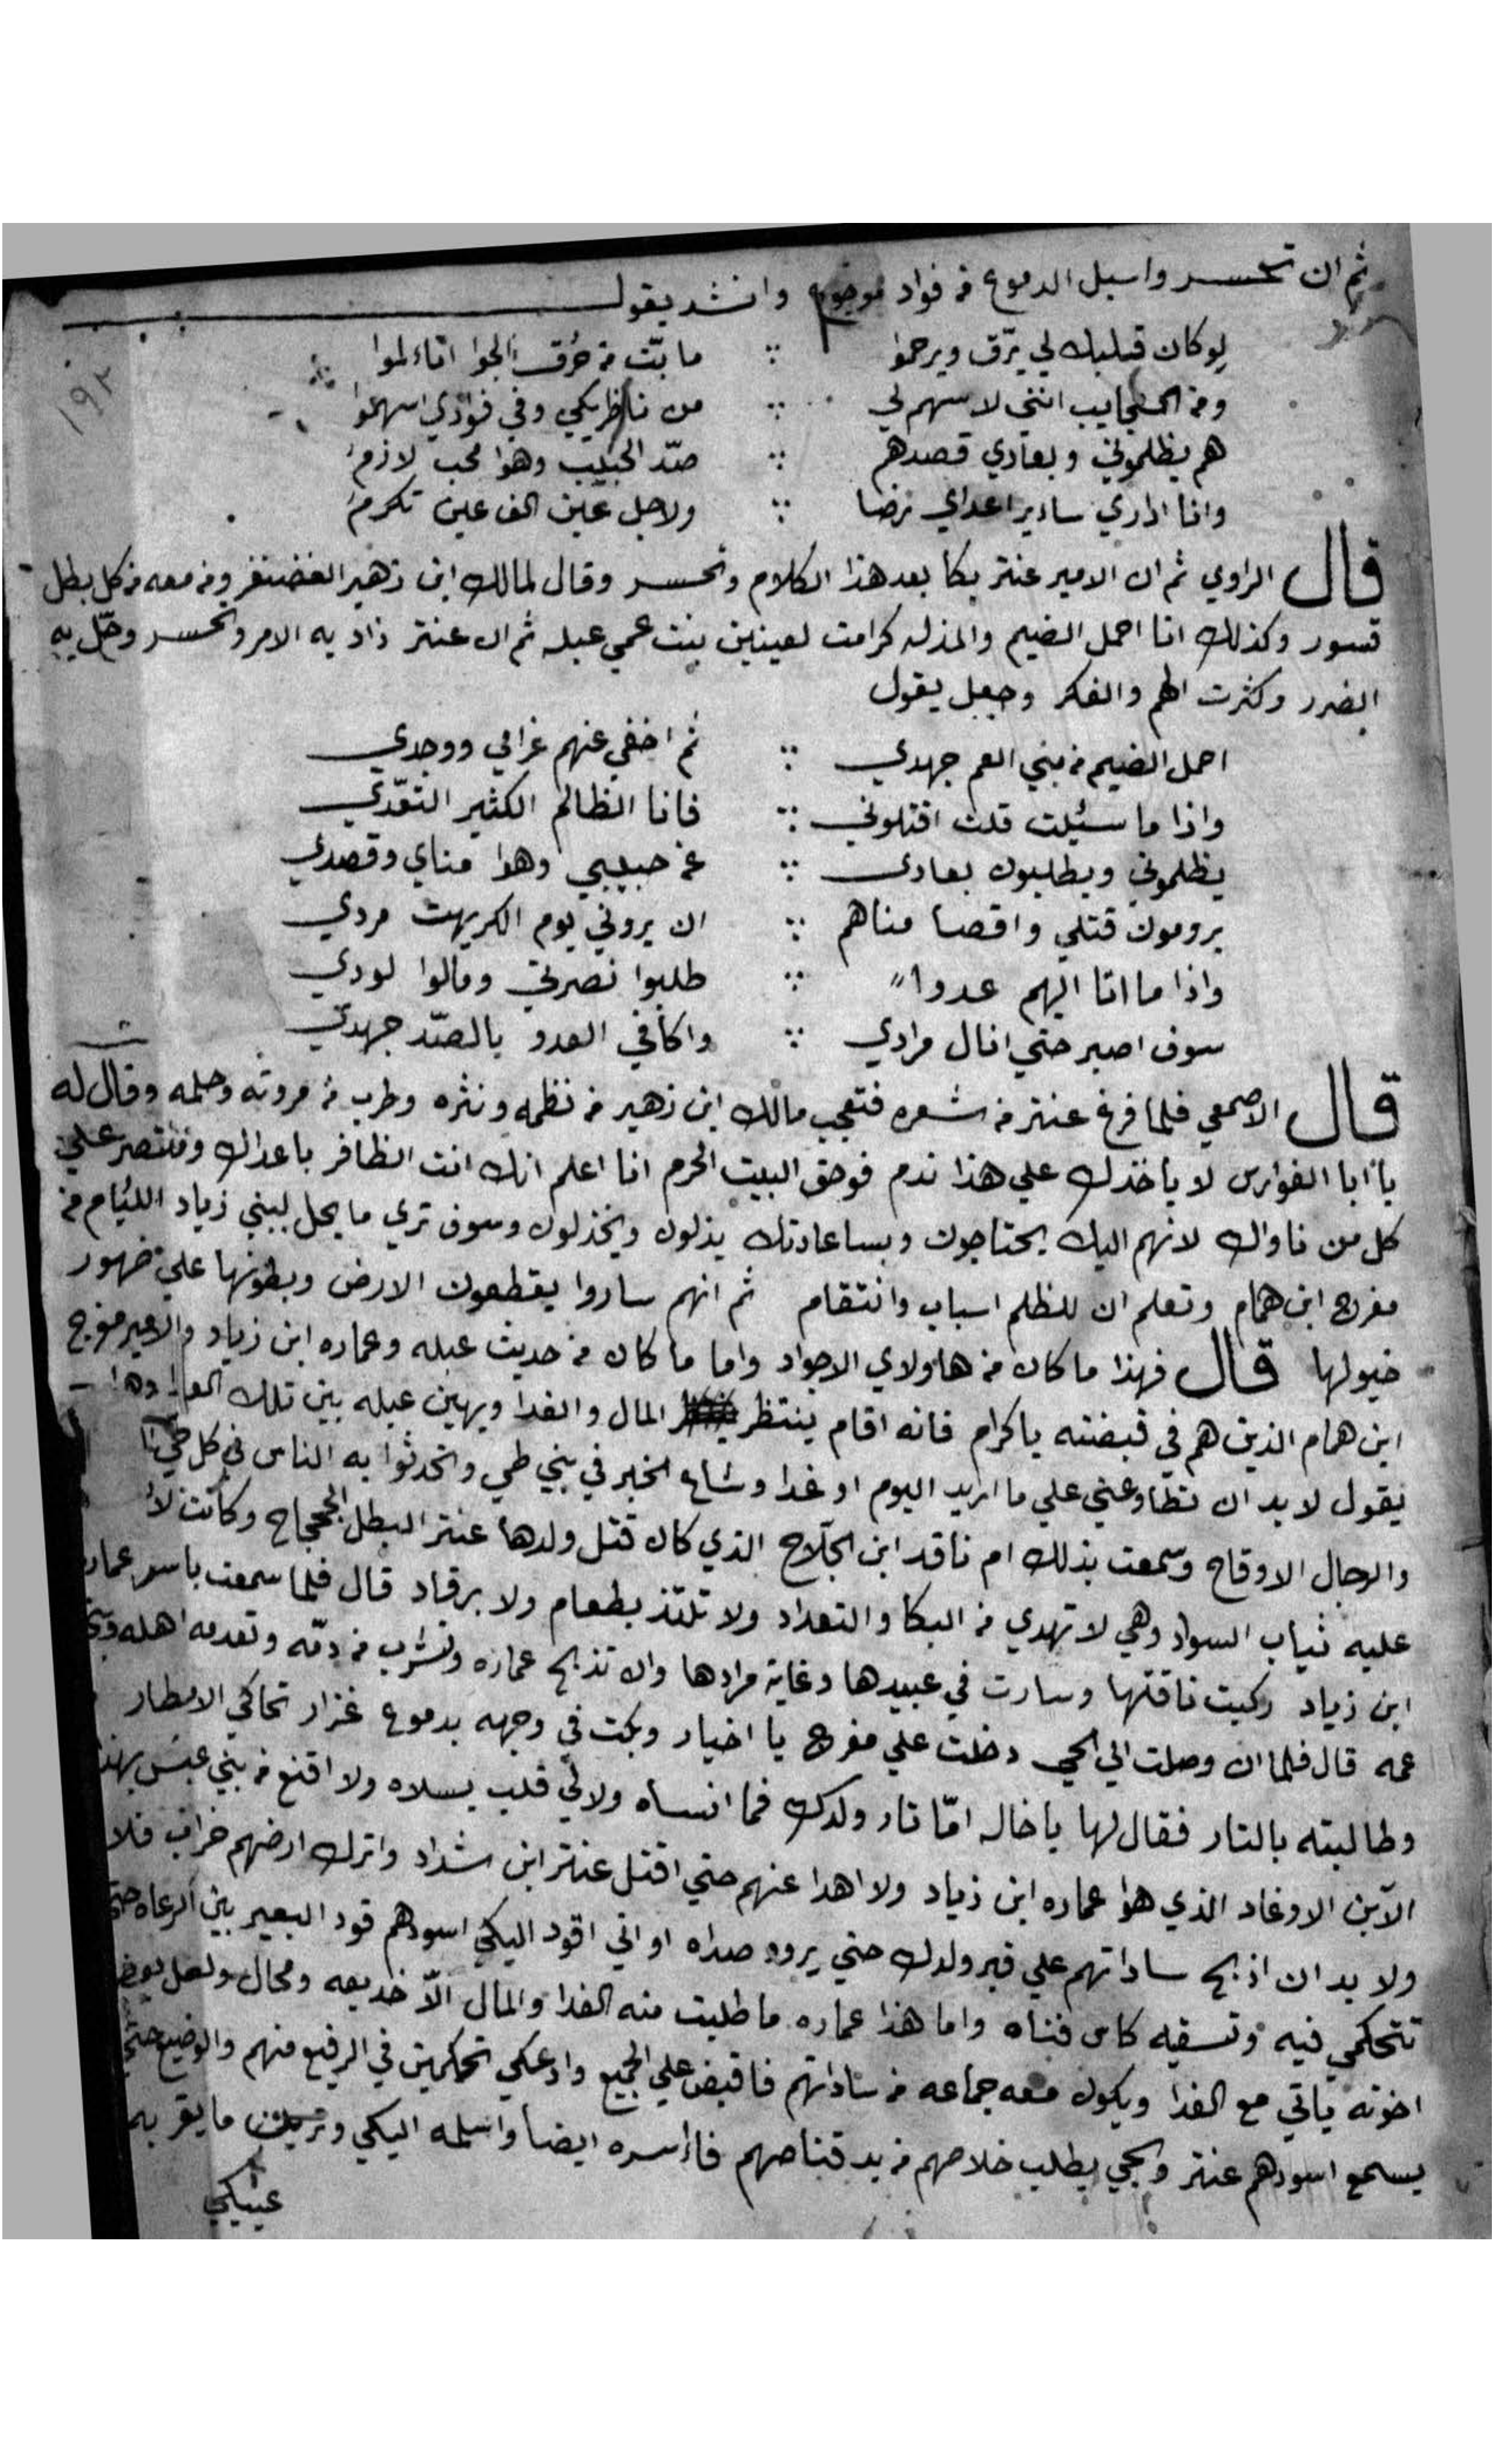 ثم ان تحسر واسبل الدموع من فواد موجوع وانشد يقول
لو كان قبلبك لي يرّق ويرحموا ∴ ما بتّ من حُرق الجوا اتاءلموا
١٩٢
ومن العجايب انني لا سهم لي ∴ من ناظريكي وفي فؤدي اسهموا
هم يظلموني وبعادي قصدهم ∴ صدّ الحبيب وهوا محب لازم
وانا اداري ساير اعداي رضا ∴ ولاجل عين الف عين تكرم
قال الراوي ثم ان الامير عنتر بكا بعد هذا الكلام وتحسر وقال لمالك ابن زهير الغضنفر ومن معه من كل بطل
قسور وكذلك انا احمل الضيم والمذله كرامت لعينين بنت عمي عبله ثم ان عنتر زاد به الامر وتحسر وحّل به
الضرر وكثرت الهم والفكر وجعل يقول
احمل الضيم من بني العم جهدي ∴ ثم اخفي عنهم غرامي ووجدي
واذا ما سئيلت قلت اقتلوني ∴ فانا الظالم الكثير التعّدي
يظلموني ويطلبون بعادي ∴ عن حبيبي وهوا مناي وقصدي
يرومون قتلي واقصا مناهم ∴ ان يروني يوم الكريهت مردي
واذا ما اتا اليهم عدوا ∴ طلبوا نصرتي ومالوا لودي
سوف اصبر حتي انال مرادي ∴ واكافي العدو بالصّد جهدي
قال الاصمعي فلما فرغ عنتر من شعره فتعجب مالك ابن زهير من نظمه ونثره وطرب من مروته وحلمه وقال له
يا ابا الفوارس لا ياخذك علي هذا ندم فوحق البيت الحرم انا اعلم انك انت الظافر باعداك وتنتصر علي
كل من ناواك لانهم اليك يحتاجون وبساعادتك يذلون ويخذلون وسوف تري ما يحل ببني زياد الليام من
مفرج ابن همام وتعلم ان للظلم اسباب وانتقام ثم انهم ساروا يقطعون الارض وبطونها علي ضهور
خيولها قال فهذا ما كان من هاولاي الاجواد واما ما كان من حديث عبله وعماره ابن زياد والامير مفرج
ابن همام الذين هم في قبضته ياكرام فانه اقام ينتظر المال والفدا ويهين عبله بين تلك
يقول لا بد ان تطاوعني علي ما اريد اليوم او غدا وشاع الخبر في بني طي وتحدثوا به الناس في كل حي
والرجال الاوقاح وسمعت بذلك ام ناقد ابن الجلاح الذي كان قتل ولدها عنتر البطل الجحجاح وكانت
عليه ثياب السواد وهي لا تهدي من البكا والتعداد ولا تلتذ بطعام ولا برقاد قال فلما سمعت باسر عماره
ابن زياد ركبت ناقتها وسارت في عبيدها وغاية مرادها والا تذبح عماره وتشرب من دمّه وتعدمه اهله
عمه قال فلما ان وصلت الي الحي دخلت علي مفرج يا اخيار وبكت في وجهه بدموع غزار تحاكي الامطار
وطالبته بالتار فقال لها يا خاله امّا تار ولدك فما انساه ولا لي قلب يسلاه ولا اقنع من بني عبس بهذا
الآبن الاوغاد الذي هوا عماره ابن زياد ولا اهدا عنهم حتي اقتل عنتر ابن شداد واترك ارضهم خراب
ولا بد ان اذبح ساداتهم علي قبر ولدك حتي يروو صداه او اني اقود اليكي اسودهم قود البعير بين الرعاه حتي
تتحكمي فيه وتسقيه كاس فناه واما هذا عماره ما طلبت منه الفدا والمال الّا خديعه ومحال ولعل بعض
اخوته ياتي مع الفدا ويكون معه جماعه من ساداتهم فاقبض علي الجميع وادعكي تحكمين في الرفيع منهم والوضيع حتي
يسمع اسودهم عنتر ويجي يطلب خلاصهم من يد قناصهم فااسره ايضا واسلمه اليكي ما يقر به
عينيكي